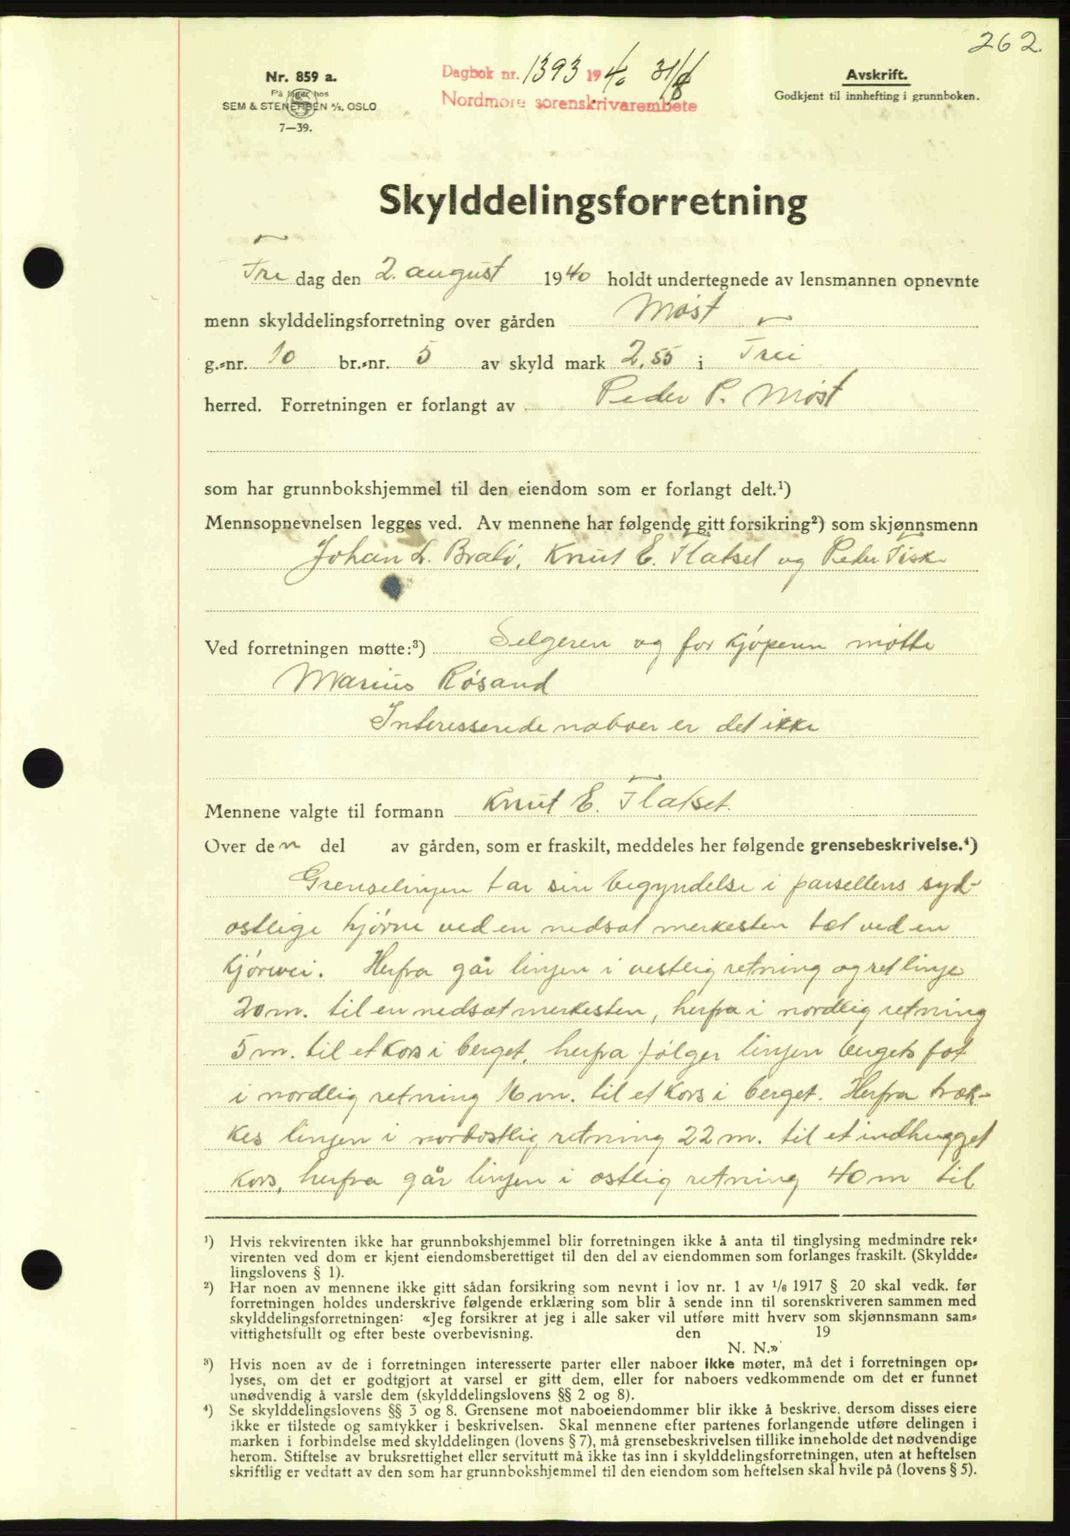 262.
Nr. 859 a.
På lager hos
SEM & STENERSEN A/S, OSLO
7—39.
Dagbok nr. 1393 1940 31/8
Nordmøre sorenskrivarembete
Avskrift.
Godkjent til innhefting i grunnboken.
Skylddelingsforretning
Fre dag den 2. august 1940 holdt undertegnede av lensmannen opnevnte
menn skylddelingsforretning over gården Møst
g.-nr. 10 br.-nr. 5 av skyld mark 2,55 i Frei
herred. Forretningen er forlangt av Peder P. Møst
som har grunnbokshjemmel til den eiendom som er forlangt delt.¹)
Mennsopnevnelsen legges ved. Av mennene har følgende gitt forsikring²) som skjønnsmenn
Johan L. Bratø, Knut E. Flatset og Peder Fiske
Ved forretningen møtte:³) Selgeren og for kjøperen møtte
Marius Røsand
Interesserede naboer er det ikke
Mennene valgte til formann Knut E. Flatset.
Over den del av gården, som er fraskilt, meddeles her følgende grensebeskrivelse.⁴)
Grenselinjen tar sin begyndelse i parsellens syd-
østlige hjørne ved en nedsat merkesten tæt ved en
kjørvei. Herfra går linjen i vestlig retning og ret linje
20 m. til en nedsat merkesten, herfra i nordlig retning
5 m. til et kors i berget, herfra følger linjen bergets fot
i nordlig retning 16 m. til et kors i berget. Herfra træk-
kes linjen i nordøstlig retning 22 m. til et indhugget
kors, herfra går linjen i østlig retning 40 m til
¹) Hvis rekvirenten ikke har grunnbokshjemmel blir forretningen ikke å anta til tinglysing medmindre rek-
virenten ved dom er kjent eiendomsberettiget til den del av eiendommen som forlanges fraskilt. (Skyldde-
lingslovens § 1).
²) Har noen av mennene ikke gitt sådan forsikring som nevnt i lov nr. 1 av 1/6 1917 § 20 skal vedk. før
forretningen holdes underskrive følgende erklæring som blir å sende inn til sorenskriveren sammen med
skylddelingsforretningen: «Jeg forsikrer at jeg i alle saker vil utføre mitt hverv som skjønnsmann sam-
vittighetsfullt og efter beste overbevisning. den 19
N. N.»
³) Hvis noen av de i forretningen interesserte parter eller naboer ikke møter, må det i forretningen op-
lyses, om det er godtgjort at varsel er gitt dem, eller for naboers vedkommende om det er funnet
unødvendig å varsle dem (skylddelingslovens §§ 2 og 8).
⁴) Se skylddelingslovens §§ 3 og 8. Grensene mot naboeiendommer blir ikke å beskrive, dersom disses eiere
ikke er tilstede og samtykker i beskrivelsen. Skal mennene efter partenes forlangende utføre delingen i
marken i forbindelse med skylddelingen (lovens § 7), må grensebeskrivelsen tillike inneholde det nødvendige
herom. Stiftelse av bruksrettighet eller servitutt må ikke tas inn i skylddelingsforretningen, uten at heftelsen
skriftlig er vedtatt av den som har grunnbokshjemmel til den eiendom som heftelsen skal hvile på (lovens § 5).